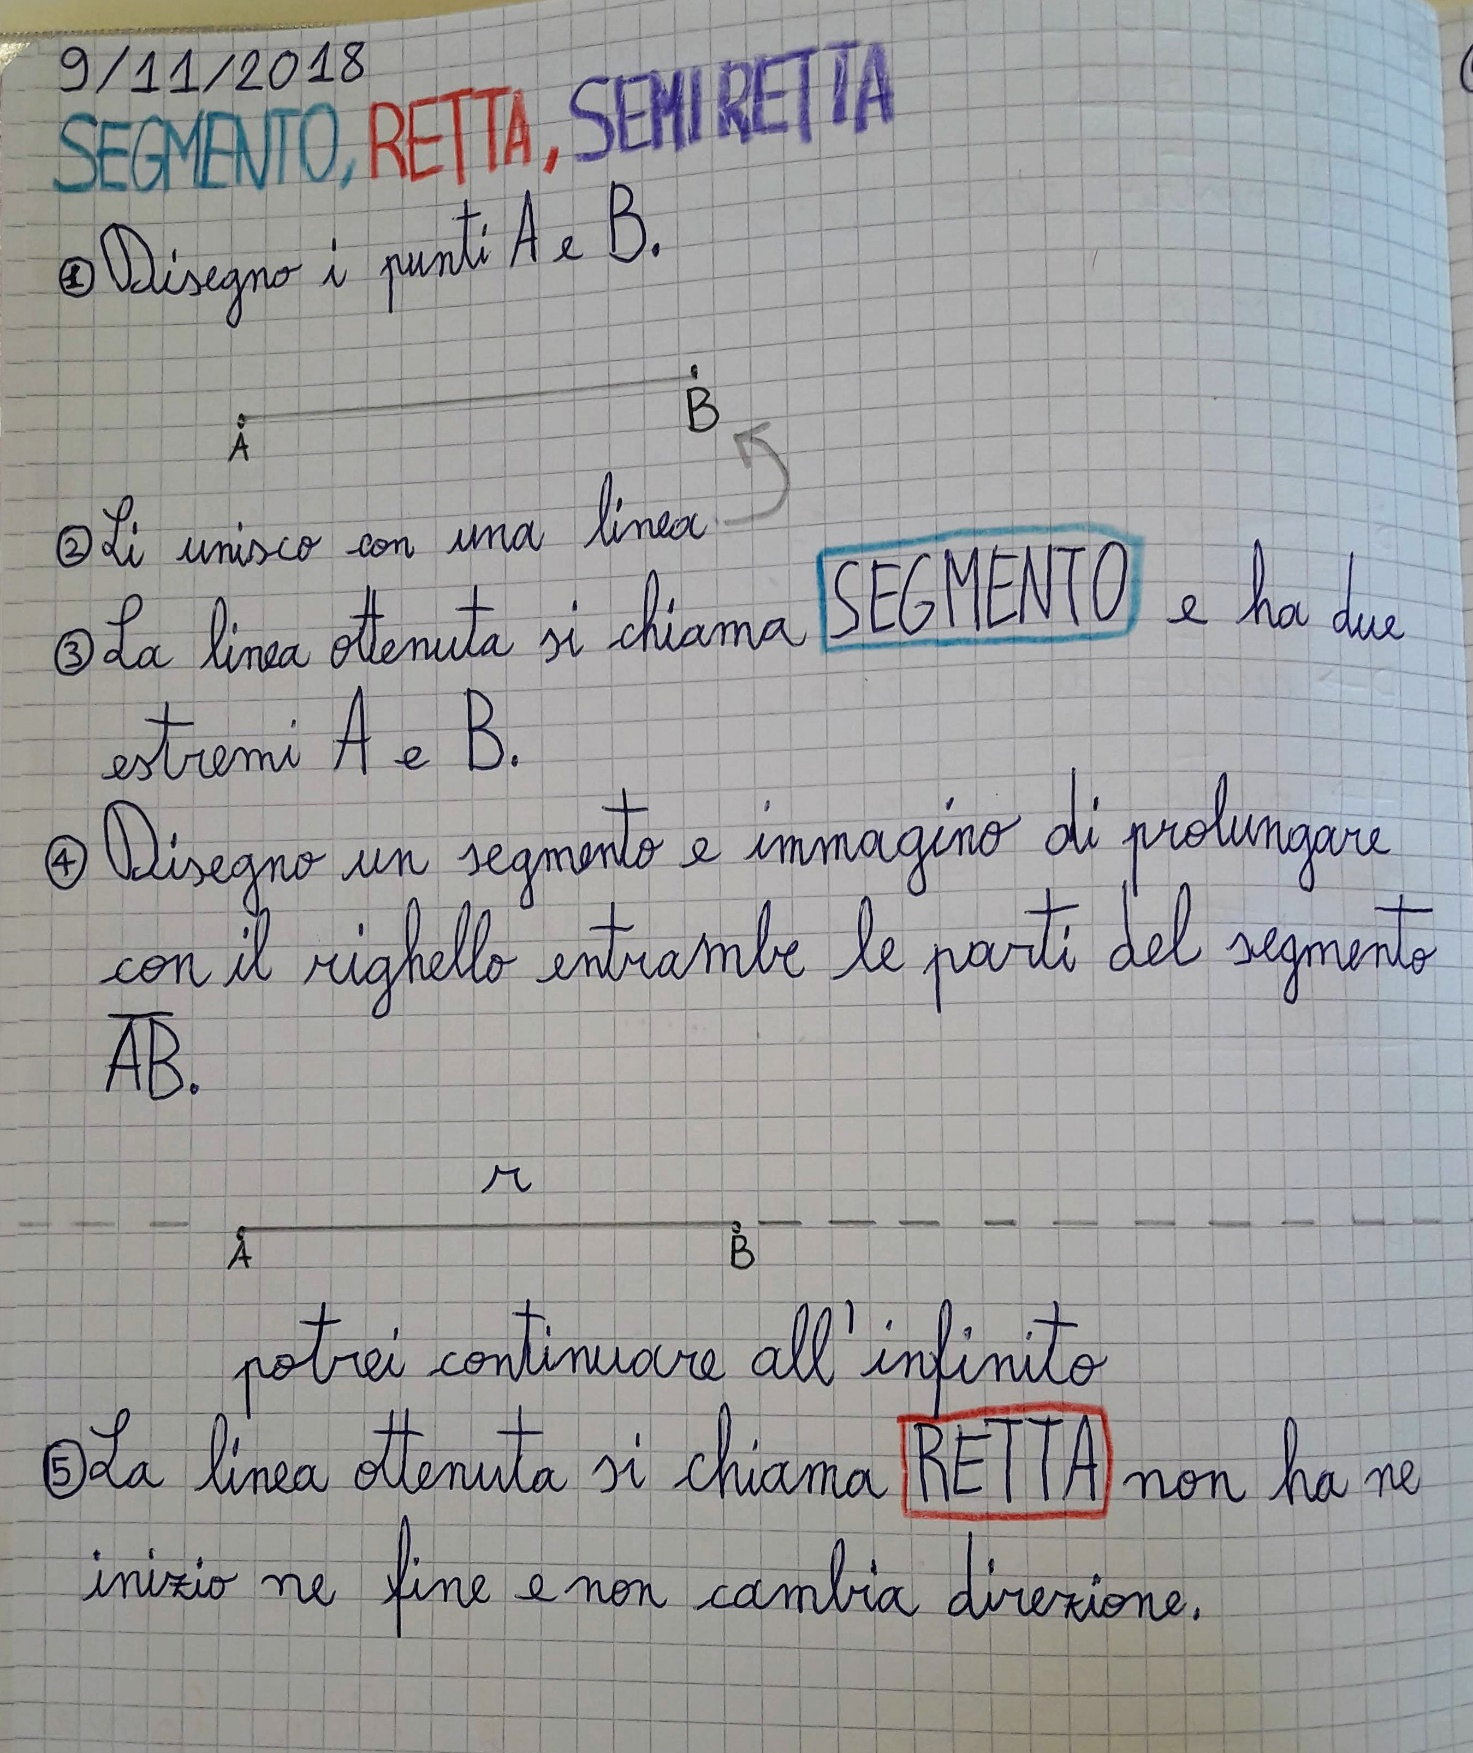 9/11/2018
SEGMENTO, RETTA, SEMIRETTA
① Disegno i punti A e B.
A B
② Li unisco con una linea
③ La linea ottenuta si chiama SEGMENTO e ha due
estremi A e B.
④ Disegno un segmento e immagino di prolungare
con il righello entrambe le parti del segmento
A̅B̅.
r
A B
potrei continuare all'infinito
⑤ La linea ottenuta si chiama RETTA non ha ne
inizio ne fine e non cambia direzione.